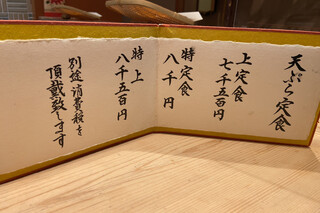 天ぷら定食
上定食
七千五百円
特定食
八千円
特上
八千五百円
別途消費税を
頂戴致します